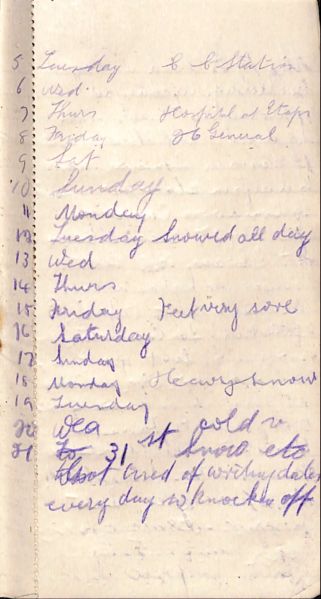 5 Tuesday C C Station
6 Wed
7 Thurs Hospital at Etaps
8 Friday 26 General
9 Sat
10 Sunday
11 Monday
12 Tuesday Snowed all day
13 Wed
14 Thurs
15 Friday Feet very sore
16 Saturday
17 Sunday
18 Monday Heavy snow
19 Tuesday
20 Wed cold
21 To 31st Snow etc
Got tired of writing dates
every day so knocked off